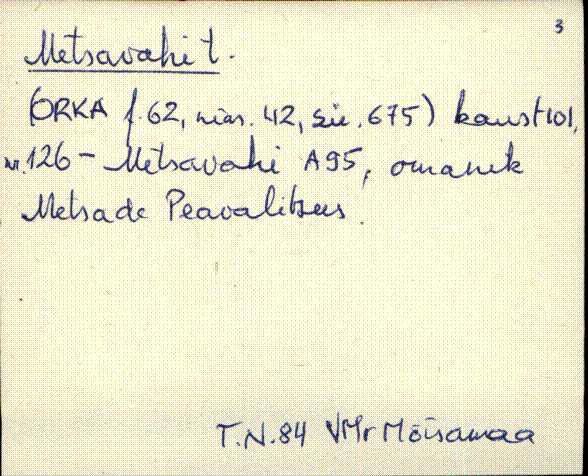 3
Metsavahi t.
(ORKA f.62, nim. 42, sü. 675) kaust 101,
nr. 126 - Metsavahi A95, omanik
Metsade Peavalitsus.
T.N.84 VMr Mõisamaa